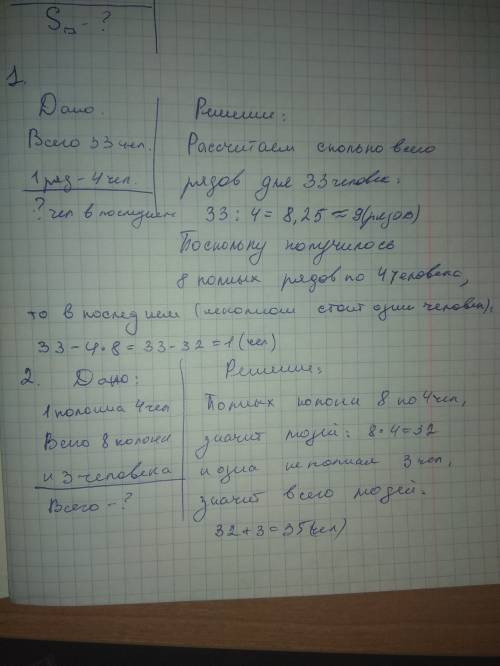 S▭ - ?
1.
Дано.
Всего 33 чел.
1 ряд - 4 чел.
? чел в последнем
Решение:
Рассчитаем сколько всего
рядов для 33 человек:
33 : 4 = 8,25 ≈ 9(рядов)
Поскольку получилось
8 полных рядов по 4 человека,
то в последнем (неполном стоит один человек):
33 - 4 · 8 = 33 - 32 = 1 (чел)
2. Дано:
1 колонна 4 чел
Всего 8 колонн
и 3 человека
Всего - ?
Решение:
Полных колонн 8 по 4 чел,
значит людей: 8 · 4 = 32
и одна неполная 3 чел,
значит всего людей:
32 + 3 = 35(чел)